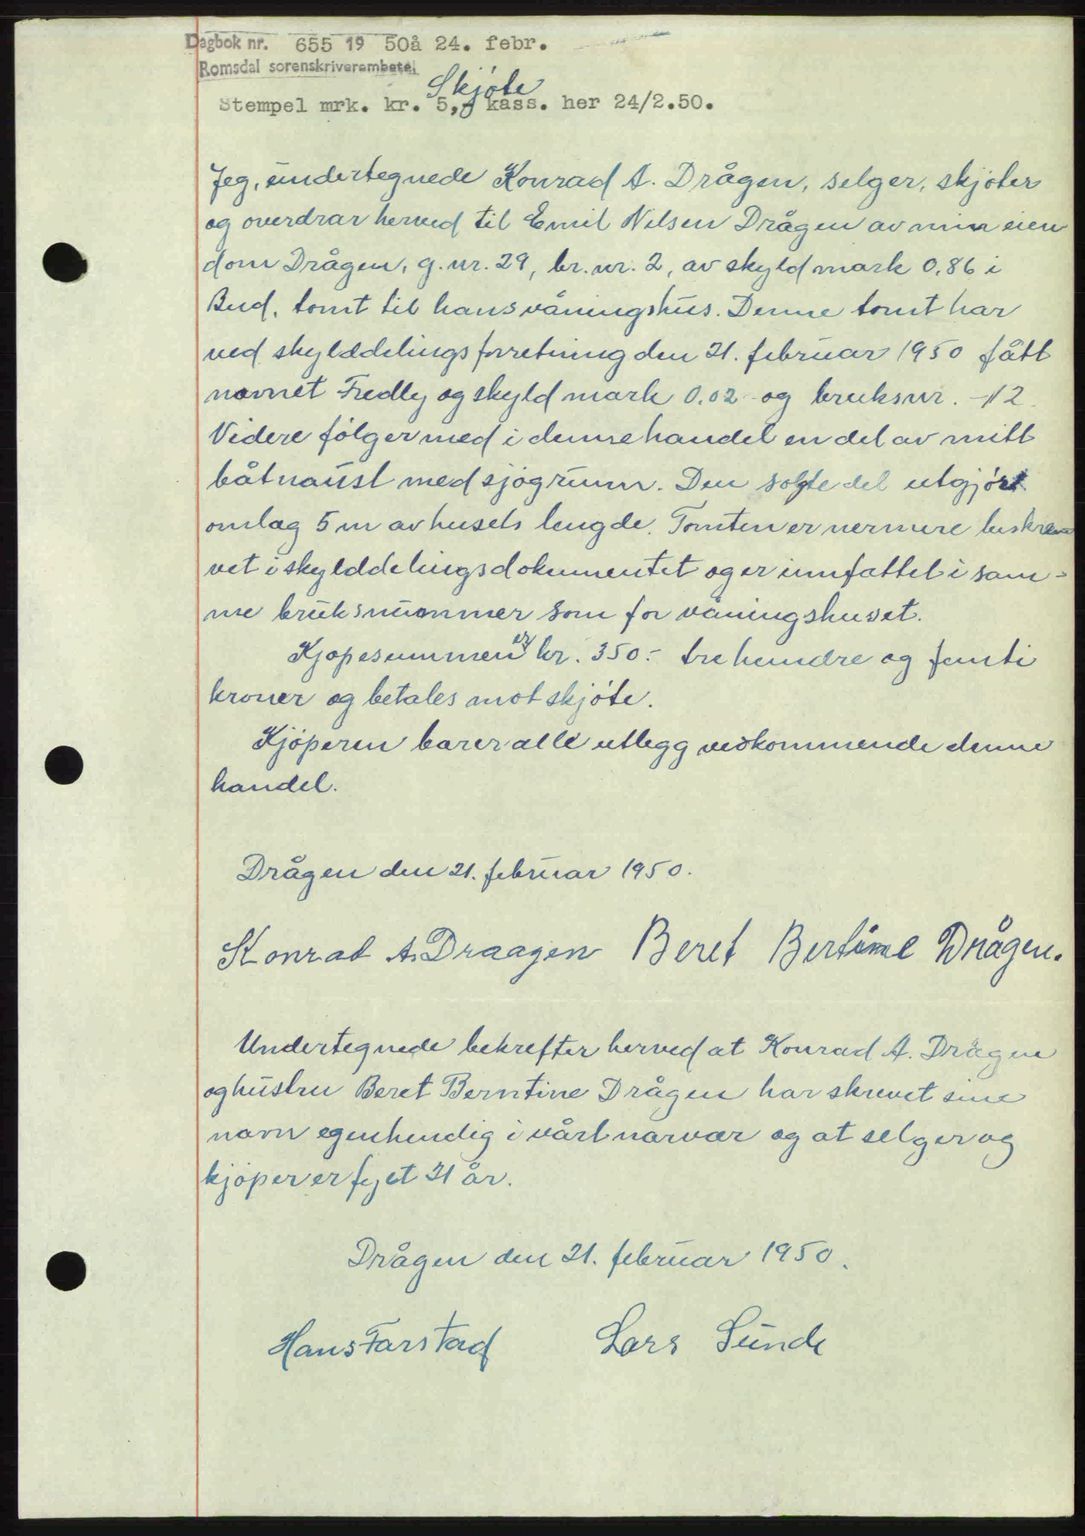 Dagbok nr. 655 19 50å 24. febr.
Romsdal sorenskriverembete
Skjøte
Stempel mrk. kr. 5,- kass. her 24/2.50.
Jeg, undertegnede Konrad A. Drågen, selger, skjøter
og overdrar herved til Emil Nilsen Drågen av min eien
dom Drågen, g.nr. 29, br.nr. 2, av skyld mark 0,86 i
Bud, tomt til hans våningshus. Denne tomt har
ved skylddelingsforretning den 21. februar 1950 fått
navnet Fredly og skyld mark 0.02 og bruksnr. 12
Videre følger med i denne handel en del av mitt
båtnaust med sjøgrunn. Den solgte del utgjør
omlag 5 m av husets lengde. Tomten er nermere beskre
vet i skylddelingsdokumentet og er innfattet i sam-
me bruksnummer som for våningshuset.
Kjøpesummen er kr. 350.- tre hundre og femti
kroner og betales mot skjøte.
Kjøperen bærer alle utlegg vedkommende denne
handel.
Drågen den 21. februar 1950.
Konrad A. Draagen Beret Bertine Drågen.
Undertegnede bekrefter herved at Konrad A. Drågen
og hustru Beret Berntine Drågen har skrevet sine
navn egenhendig i vårt nærvær og at selger og
kjøper er fyllt 21 år.
Drågen den 21. februar 1950.
Hans Farstad Lars Sunde